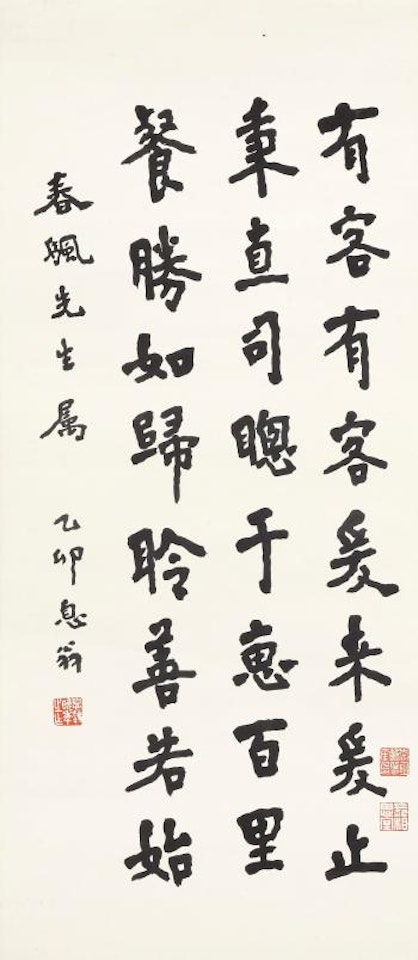 有客有客爰来爰止
秉直司聰于恵百里
餐勝如歸聆善若始
春颿先生属 乙卯息翁